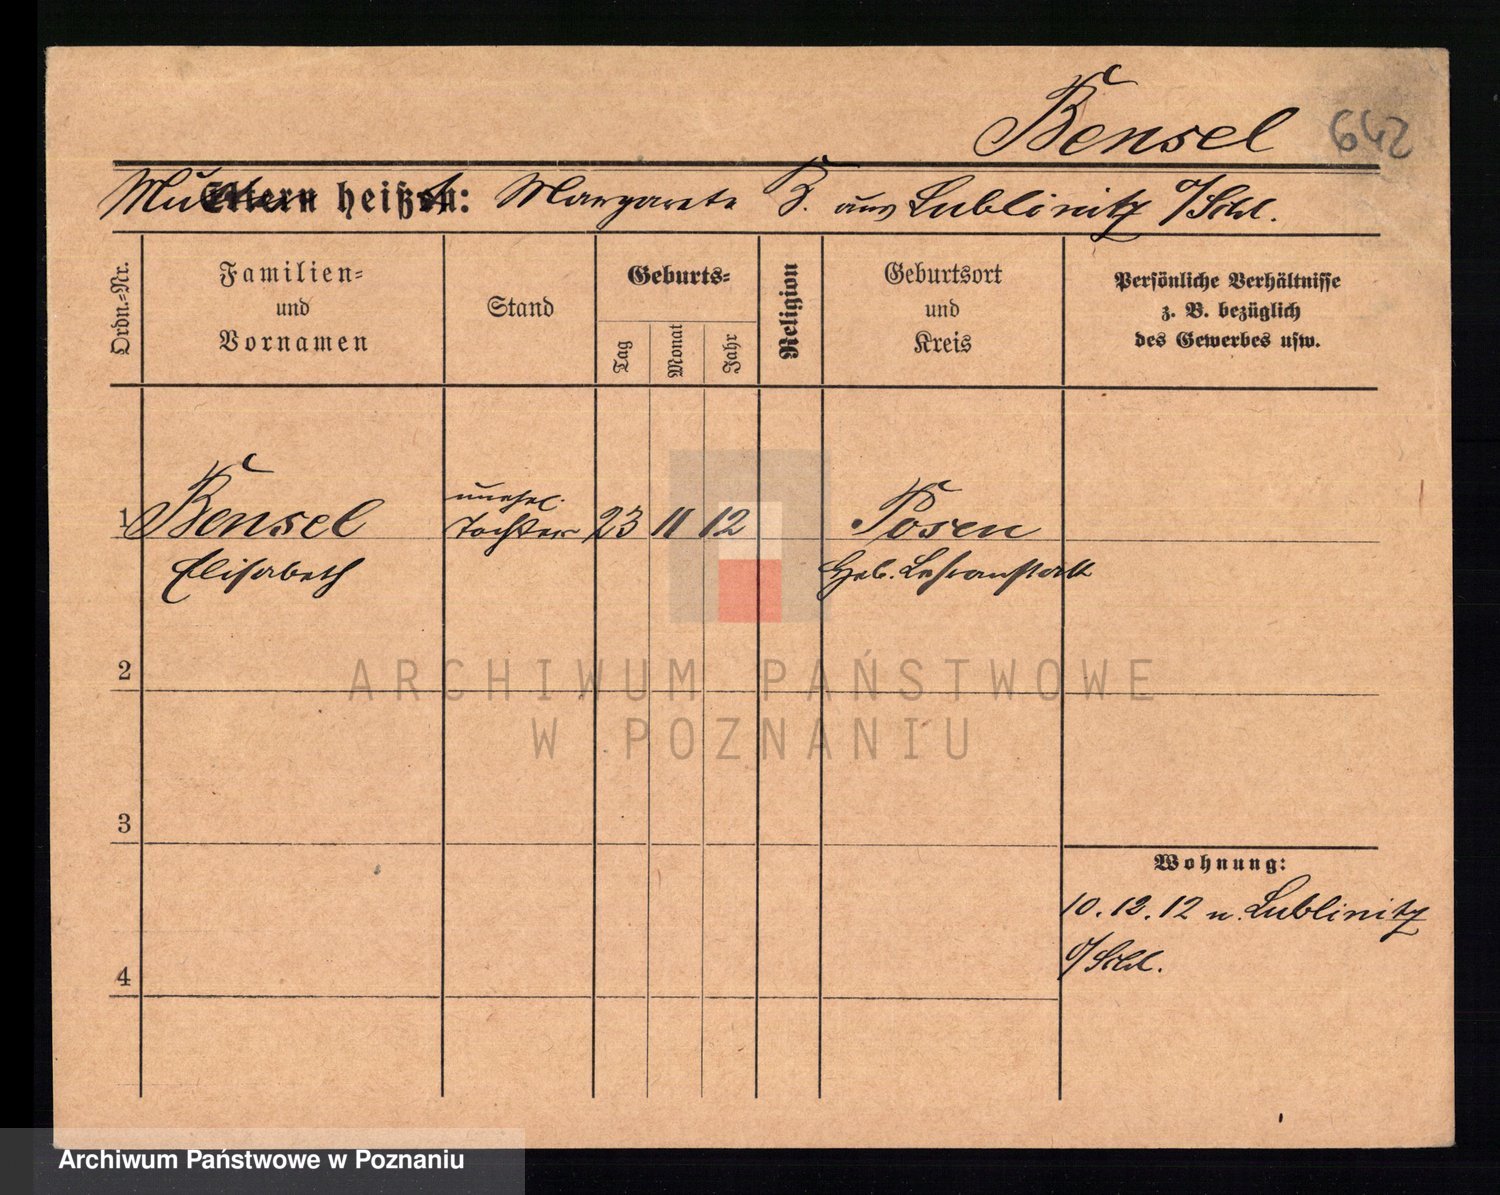 Bensel 642
Mutter heißt: Margarete B. aus Lublinitz O/Schl.
Ordn.-Nr.
Familien-
und
Vornamen
Stand
Geburts-
Tag
Monat
Jahr
Religion
Geburtsort
und
Kreis
Persönliche Verhältnisse
z. B. bezüglich
des Gewerbes usw.
unehel.
1 Bensel Tochter 23 11 12 Posen
Elisabeth Heb. Lehranstalt
2
ARCHIWUM PAŃSTWOWE
W POZNANIU
3
Wohnung:
10.12.12 n. Lublinitz
O/Schl.
4
Archiwum Państwowe w Poznaniu